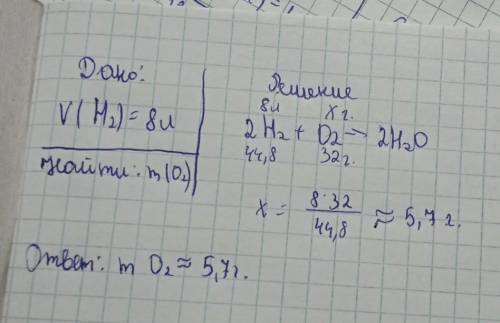 Дано:
V(H₂)=8л
Найти: m(O₂)
Решение
8л xг.
2H₂ + O₂ → 2H₂O
44,8 32г.
x = 8·32 / 44,8 ≈ 5,7г.
Ответ: m O₂ ≈ 5,7г.